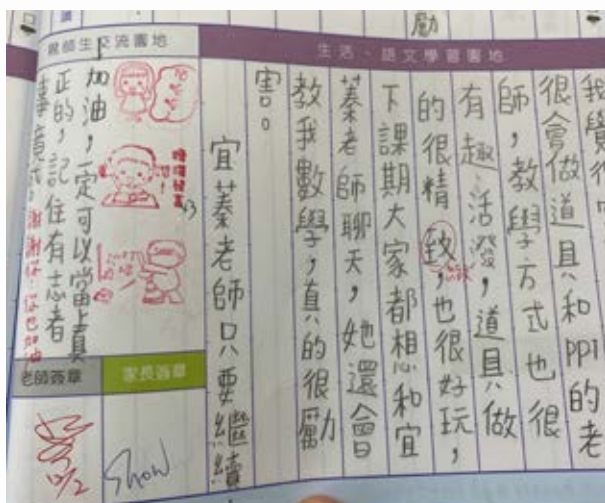 讀
勵
親師生交流園地
生活、語文學習園地
我覺得
很會做道具和PPT的老
師，教學方式也很
有趣活潑，道具做
的很精致，也很好玩，
緻
下課期大家都想和宜
蓁老師聊天，她還會
教我數學，真的很勵
害。
宜蓁老師只要繼續
加油，一定可以當上真
正的，記住有志者
事竟成。
謝謝你！你也加油
老師簽章
家長簽章
Show